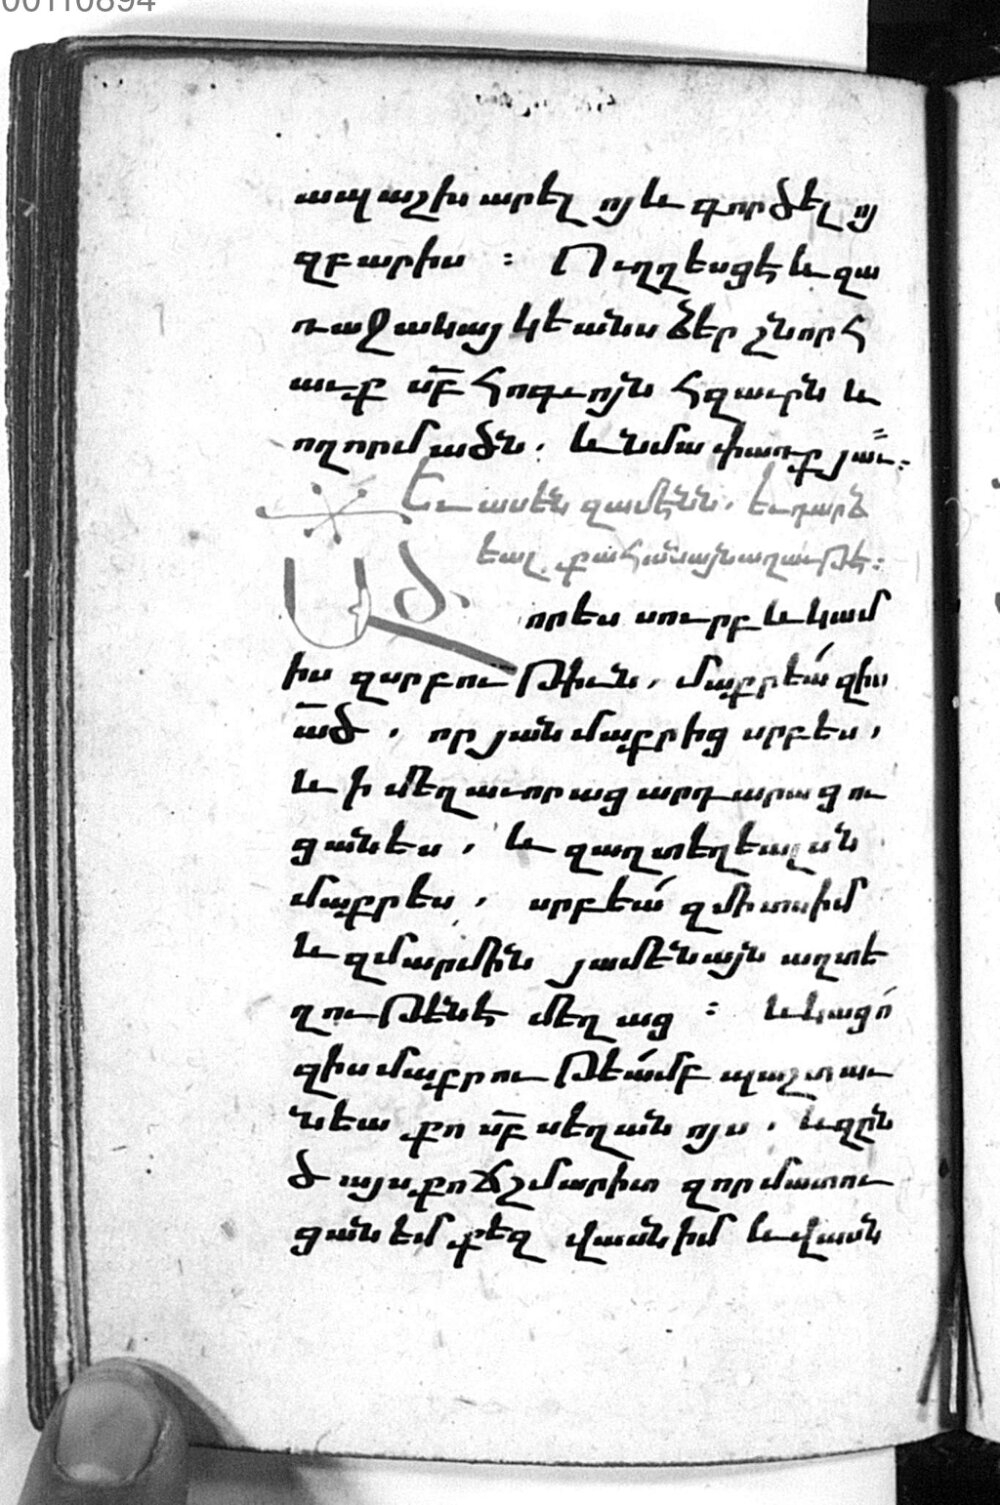 00110894
ապաշխարելոյ և գործելոյ
զբարիս : Ուղղեսցէ և զա
ռաջակայ կեանս ձեր շնորհ
աւք սբ հոգւոյն հզաւրն և
ողորմածն. և նմա փառք յաւ :
Եւ ասեն զամէնն. եւ դարձ
եալ քահանայն աղաւթէ :
Ած որ ես սուրբ և կամ
իս զսրբութիւն, մաքրեա զիս
ած, որ յանմաքրից սրբես,
և ի մեղաւորաց արդարացու
ցանես, և զաղտեղեալսն
մաքրես, սրբեա զմիտս իմ
և զմարմին յամենայն աղտե
ղութենէ մեղաց : և կացո
զիս մաքրութեամբ պաշտաւ
նեա քո սբ սեղանոյս, և զըն
ծայս քո ճշմարիտ զոր մատու
ցանեմ քեզ վասն իմ և վասն